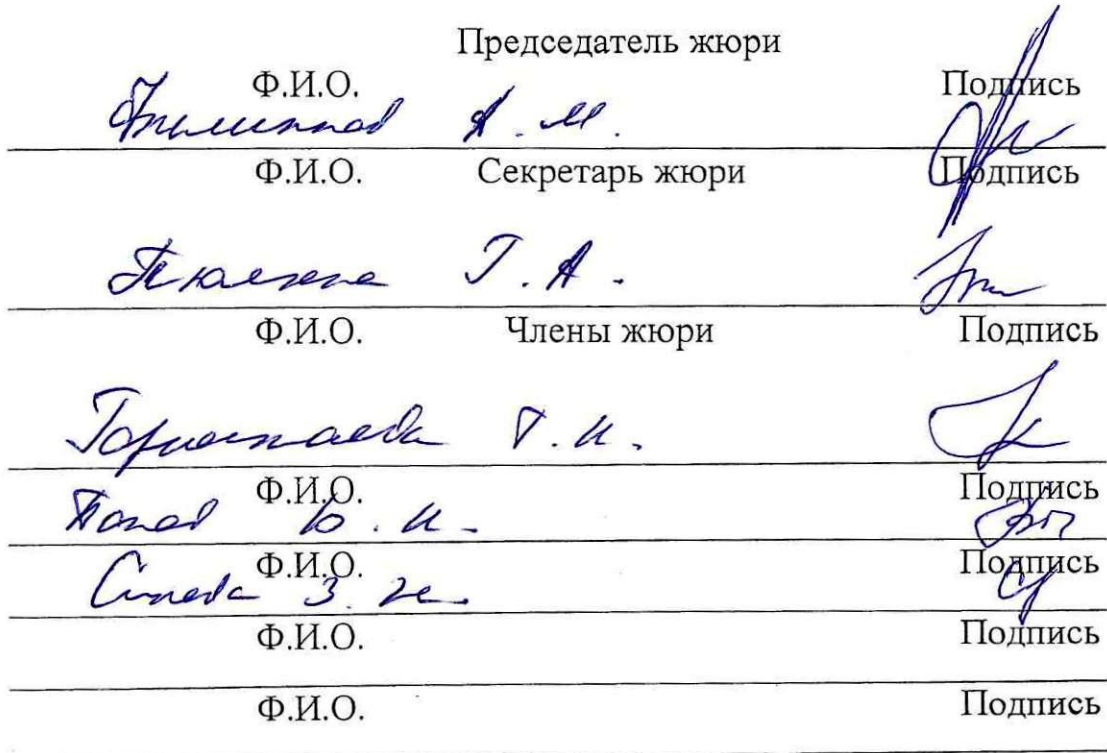 Председатель жюри
Ф.И.О. Подпись
А. М.
Ф.И.О. Секретарь жюри Подпись
Т. А.
Ф.И.О. Члены жюри Подпись
Горностаева Т. И.
Ф.И.О. Подпись
Попов Ю. И.
Ф.И.О. Подпись
З. И.
Ф.И.О. Подпись
Ф.И.О. Подпись